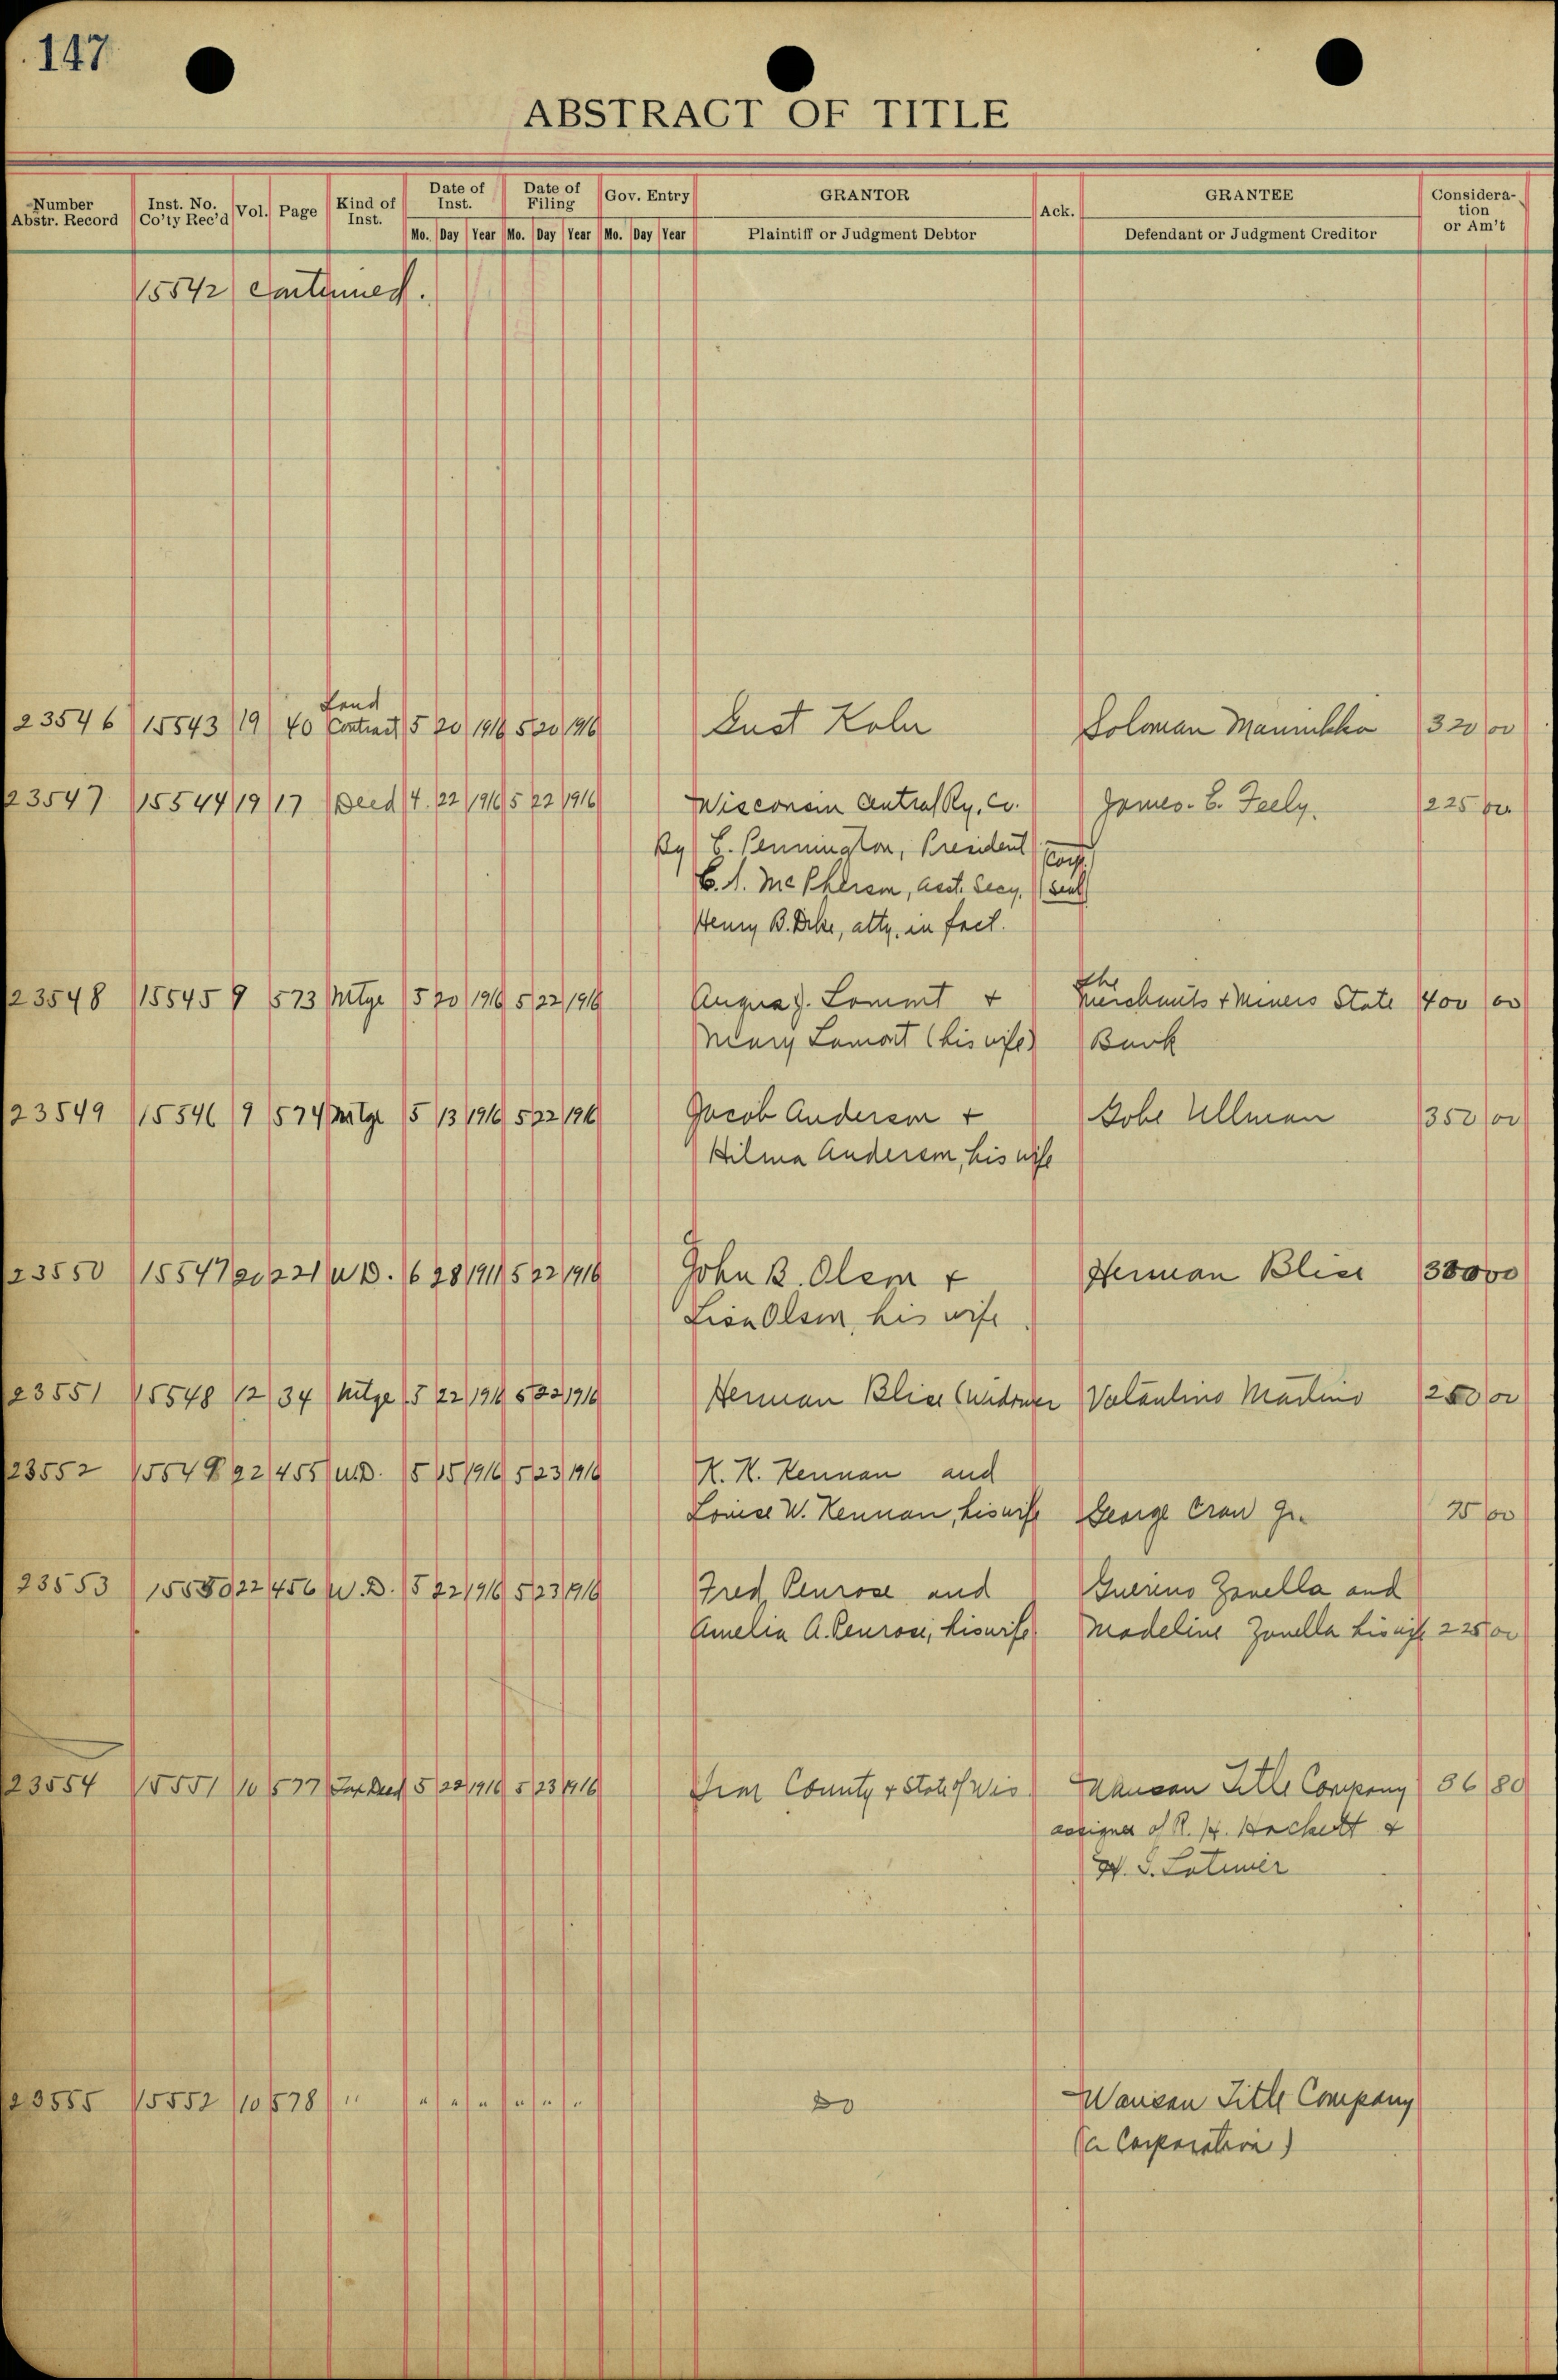 147
ABSTRACT OF TITLE
Number Abstr. Record Inst. No. Co'ty Rec'd Vol. Page Kind of Inst. Date of Inst. Date of Filing Gov. Entry GRANTOR Ack. GRANTEE Consideration or Am't
Mo. Day Year Mo. Day Year Mo. Day Year Plaintiff or Judgment Debtor Defendant or Judgment Creditor
15542 continued.
Land
23546 15543 19 40 Contract 5 20 1916 5 20 1916 Gust Kohn Soloman Mannikko 320 00
23547 15544 19 17 Deed 4. 22 1916 5 22 1916 Wisconsin Central Ry. Co. James. E. Feely. 225 00
By E. Pennington, President Corp.
G. A. McPherson, asst. Secy. seal
Henry B. Dike, atty. in fact.
23548 15545 9 573 Mtge 5 20 1916 5 22 1916 Angus J. Lamont + The Merchants + Miners State 400 00
Mary Lamont (his wife) Bank
23549 15546 9 574 Mtge 5 13 1916 5 22 1916 Jacob Anderson + Gobe Ullman 350 00
Hilma Anderson, his wife
23550 15547 20 221 W.D. 6 28 1911 5 22 1916 John B. Olson + Herman Blise
Lisa Olson, his wife
23551 15548 12 34 Mtge 5 22 1916 5 22 1916 Herman Blise (widower Valantino Martino 250 00
23552 15549 22 455 W.D. 5 15 1916 5 23 1916 K. K. Kennan and
Louise W. Kennan, his wife George Cran Jr. 75 00
23553 15550 22 456 W.D. 5 22 1916 5 23 1916 Fred Penrose and Guerino Zanella and
Amelia A. Penrose, his wife Madeline Zanella his wife 225 00
23554 15551 10 577 Tax Deed 5 22 1916 5 23 1916 Iron County + State of Wis. Wausau Title Company 36 80
assignee of R. H. Hackett +
W. S. Latimer
23555 15552 10 578 " " " " " " " Do Wausau Title Company
(a Corporation)